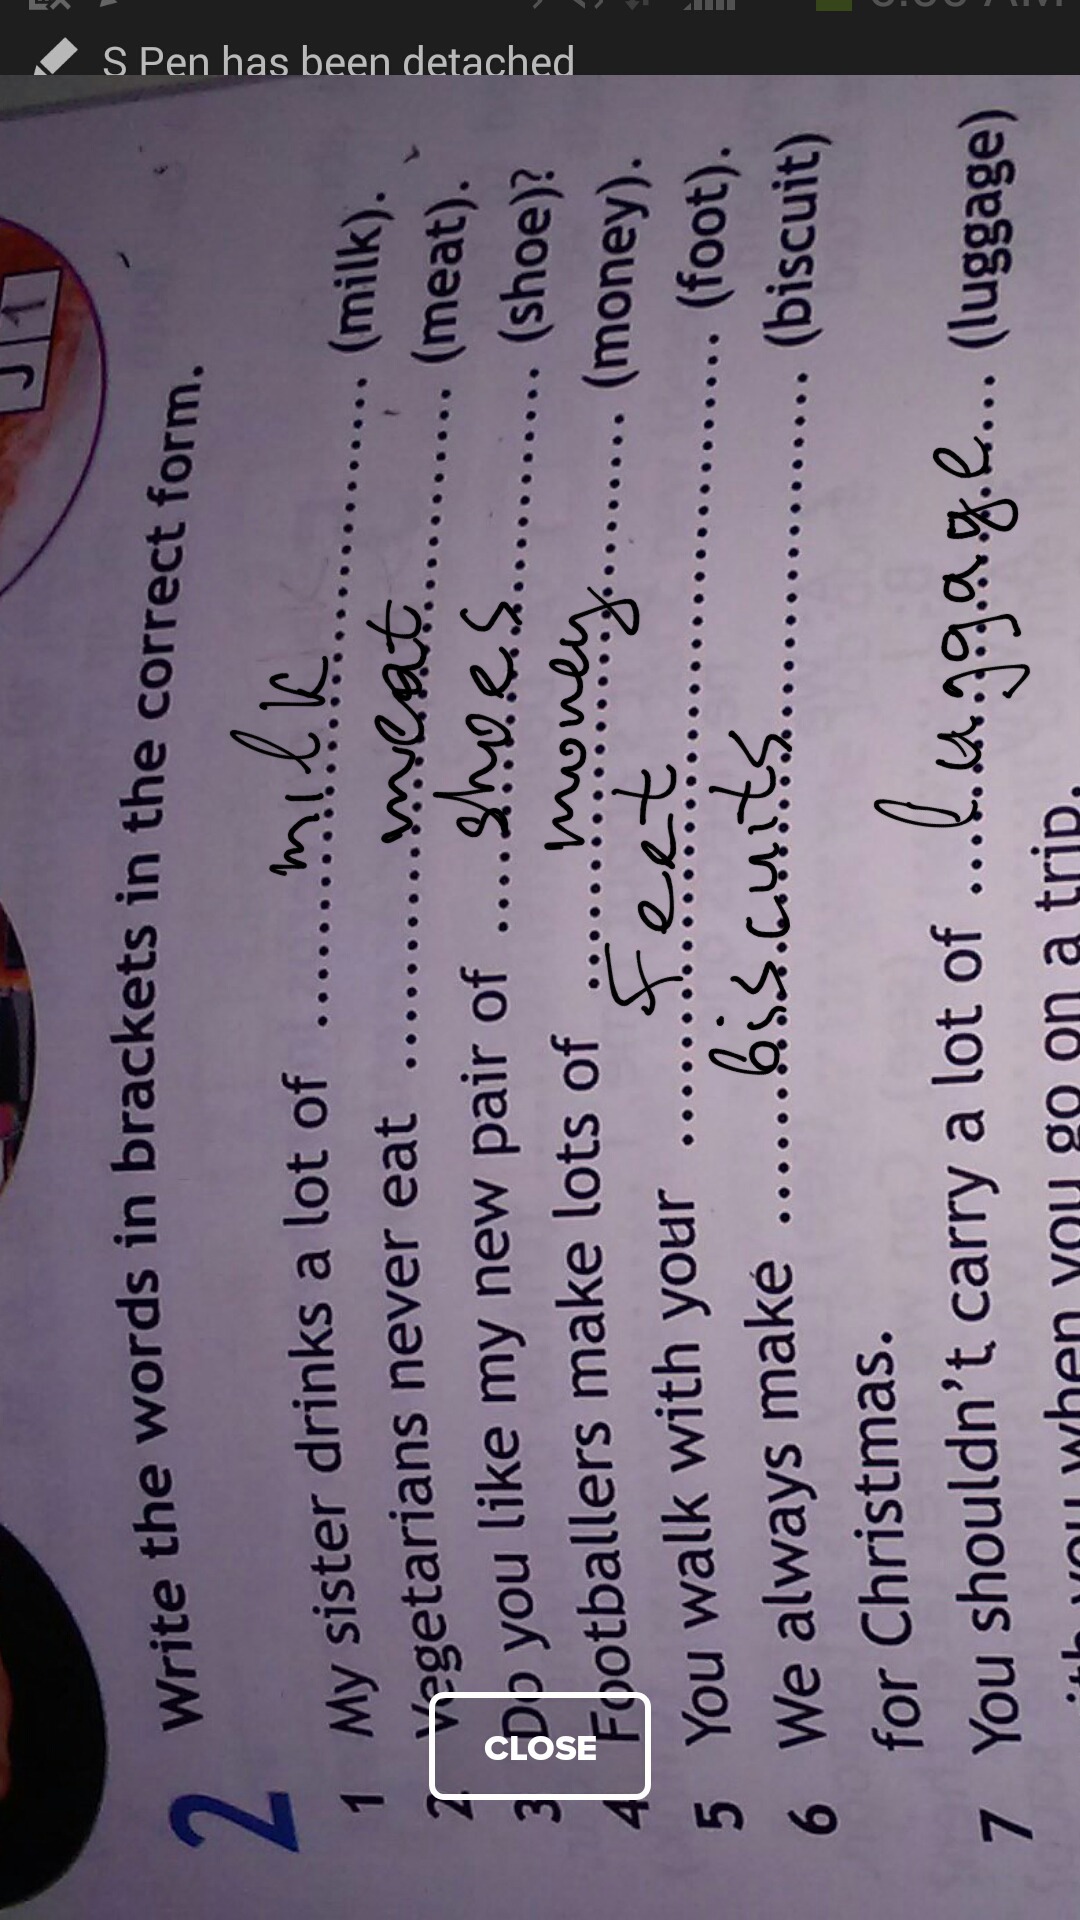 S Pen has been detached
2 Write the words in brackets in the correct form.
1 My sister drinks a lot of ......milk...... (milk).
2 Vegetarians never eat ......meat...... (meat).
3 Do you like my new pair of ......shoes...... (shoe)?
4 Footballers make lots of ......money...... (money).
5 You walk with your ......feet...... (foot).
6 We always make ......biscuits...... (biscuit)
for Christmas.
7 You shouldn't carry a lot of ....luggage.... (luggage)
with you when you go on a trip.
CLOSE